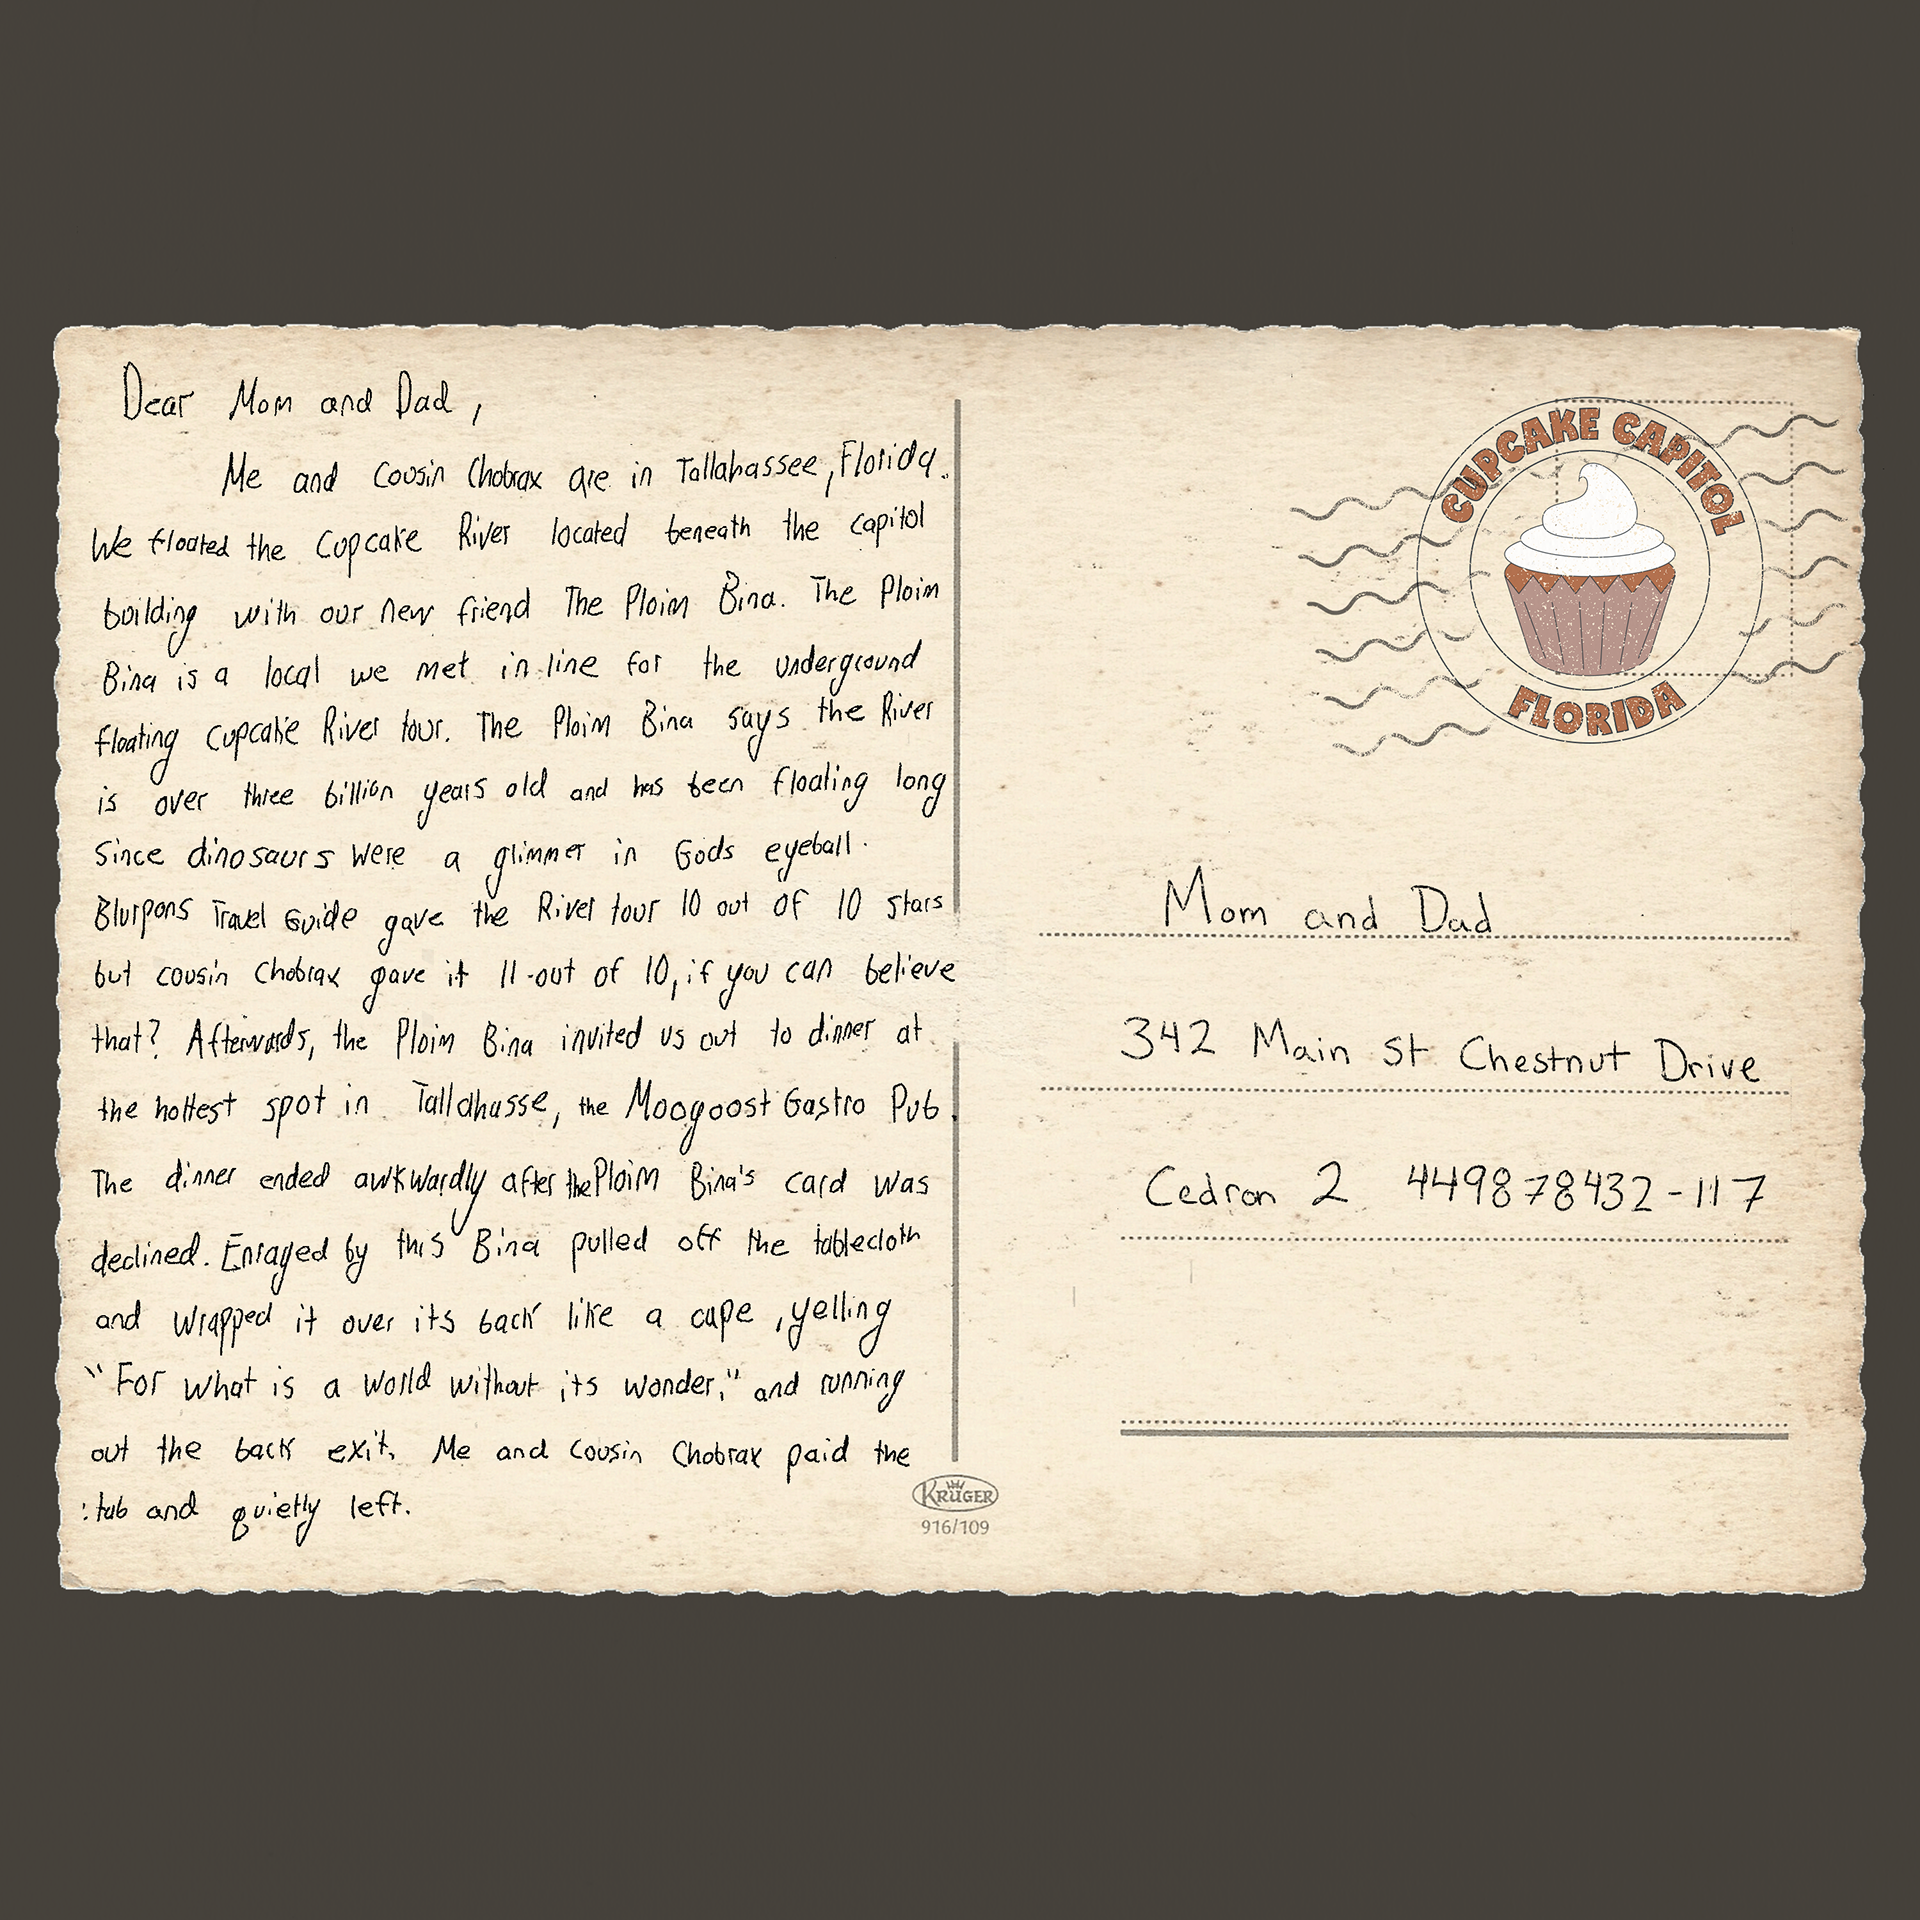 Dear Mom and Dad,
Me and Cousin Chobrax are in Tallahassee, Florida.
We floated the Cupcake River located beneath the capitol
building with our new friend The Ploim Bina. The Ploim
Bina is a local we met in line for the underground
floating Cupcake River tour. The Ploim Bina says the River
is over three billion years old and has been floating long
since dinosaurs were a glimmer in Gods eyeball.
Blurpons Travel Guide gave the River tour 10 out of 10 stars
but cousin Chobrax gave it 11 out of 10, if you can believe
that? Afterwards, the Ploim Bina invited us out to dinner at
the hottest spot in Tallahasse, the Moogoost Gastro Pub.
The dinner ended awkwardly after the Ploim Bina's card was
declined. Enraged by this Bina pulled off the tablecloth
and wrapped it over its back like a cape, yelling
"For what is a world without its wonder," and running
out the back exit. Me and Cousin Chobrax paid the
tab and quietly left.
CUPCAKE CAPITOL
FLORIDA
Mom and Dad
342 Main St Chestnut Drive
Cedron 2 449878432-117
KRÜGER
916/109